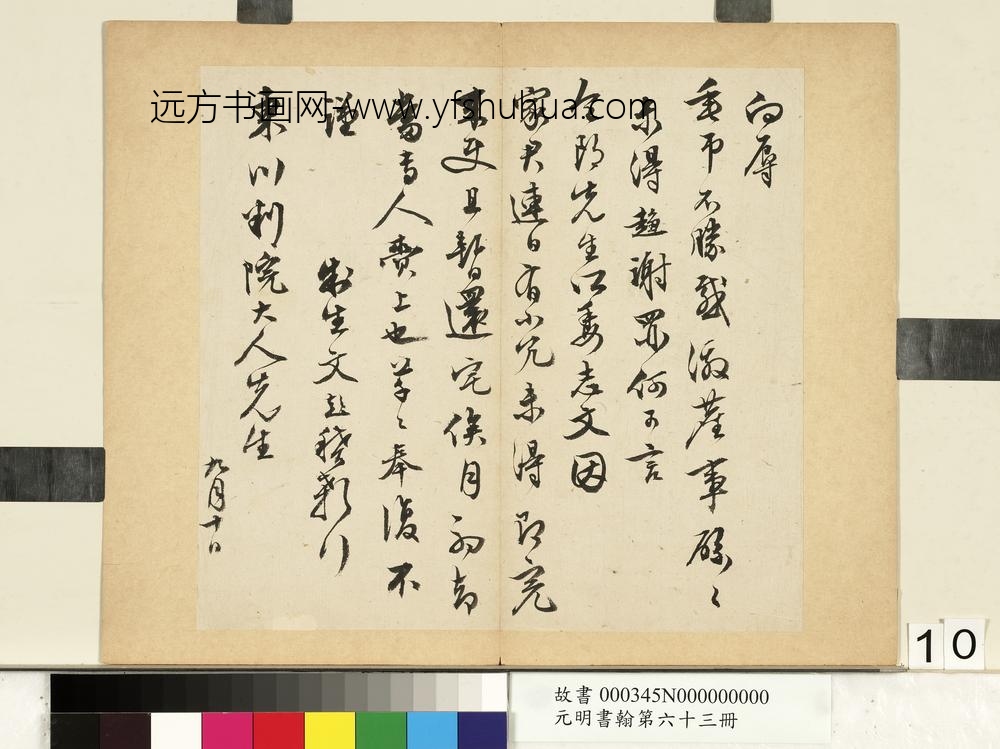 向辱
垂吊不勝感激產事碌〻
未得趨謝罪何可言
令郎先生所委志文因
家君連日有小冗未得即完
來吏且暫還宅俟月初
當專人賚上也草〻奉復不
謹
制生文彭稽顙行
東川判院大人先生
九月十日
远方书画网-www.yfshuhua.com
10
故書 000345N000000000
元明書翰第六十三冊